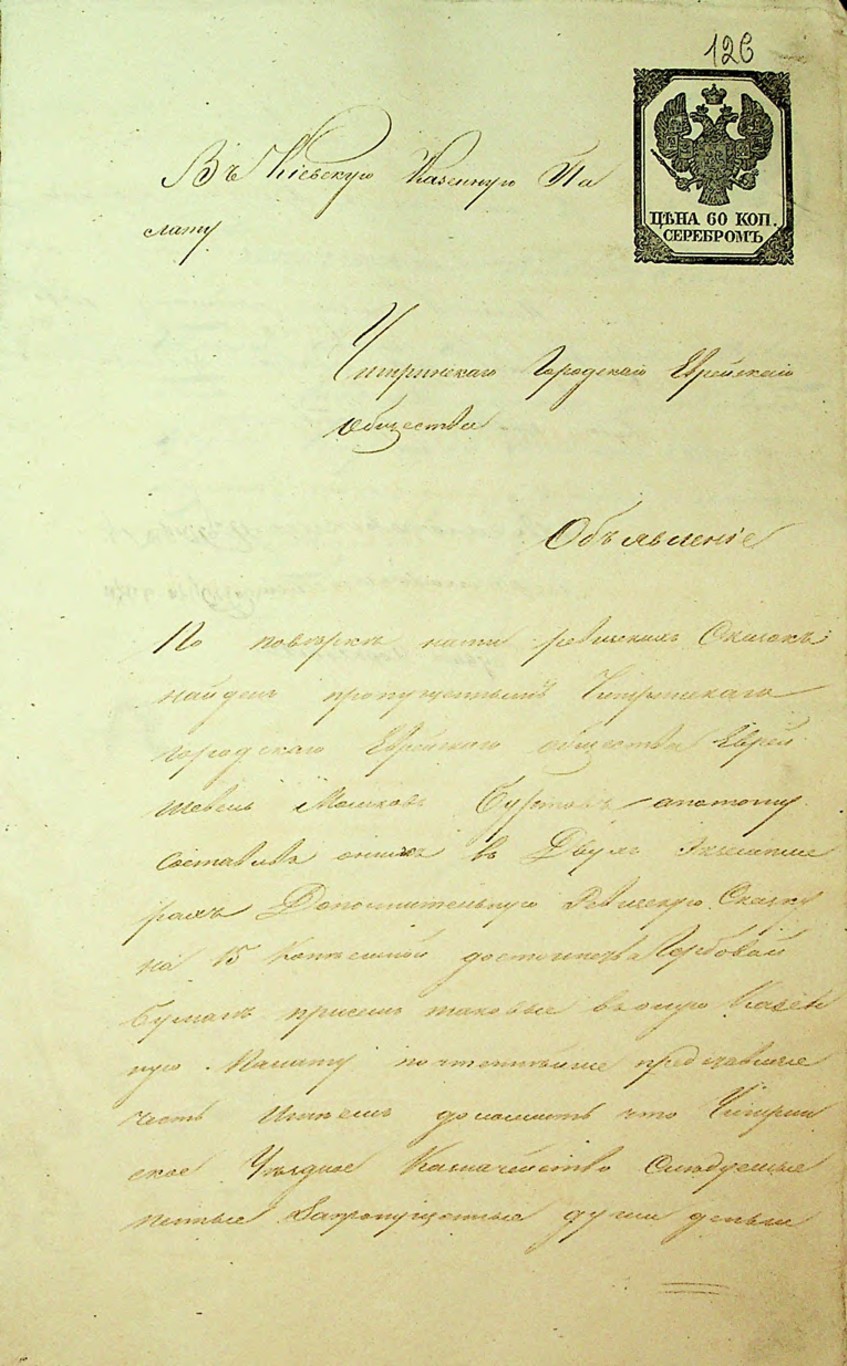 126
ЦѢНА 60 КОП.
СЕРЕБРОМЪ
Въ Кіевскую Казенную Па
лату
Чигринскаго Городскаго Еврейскаго
Общества
Объявленіе
По повѣркѣ нами ревизскихъ Сказокъ
найденъ пропущеннымъ Чигринскаго
городскаго Еврейскаго общества Еврей
Шевель Мошковъ апотому
Составивъ оныхъ въ Двухъ Экземпля
рахъ Дополнительную Ревизскую Сказку
на 15 Копѣечной достоинства Гербовой
бумагѣ при семъ таковые въ оную Казен
ную Палату почтеннѣйше представляе
честь имѣемъ доложить что Чигрин
ское Уѣздное Казначейство Слѣдуемые
запропущенные души деньги